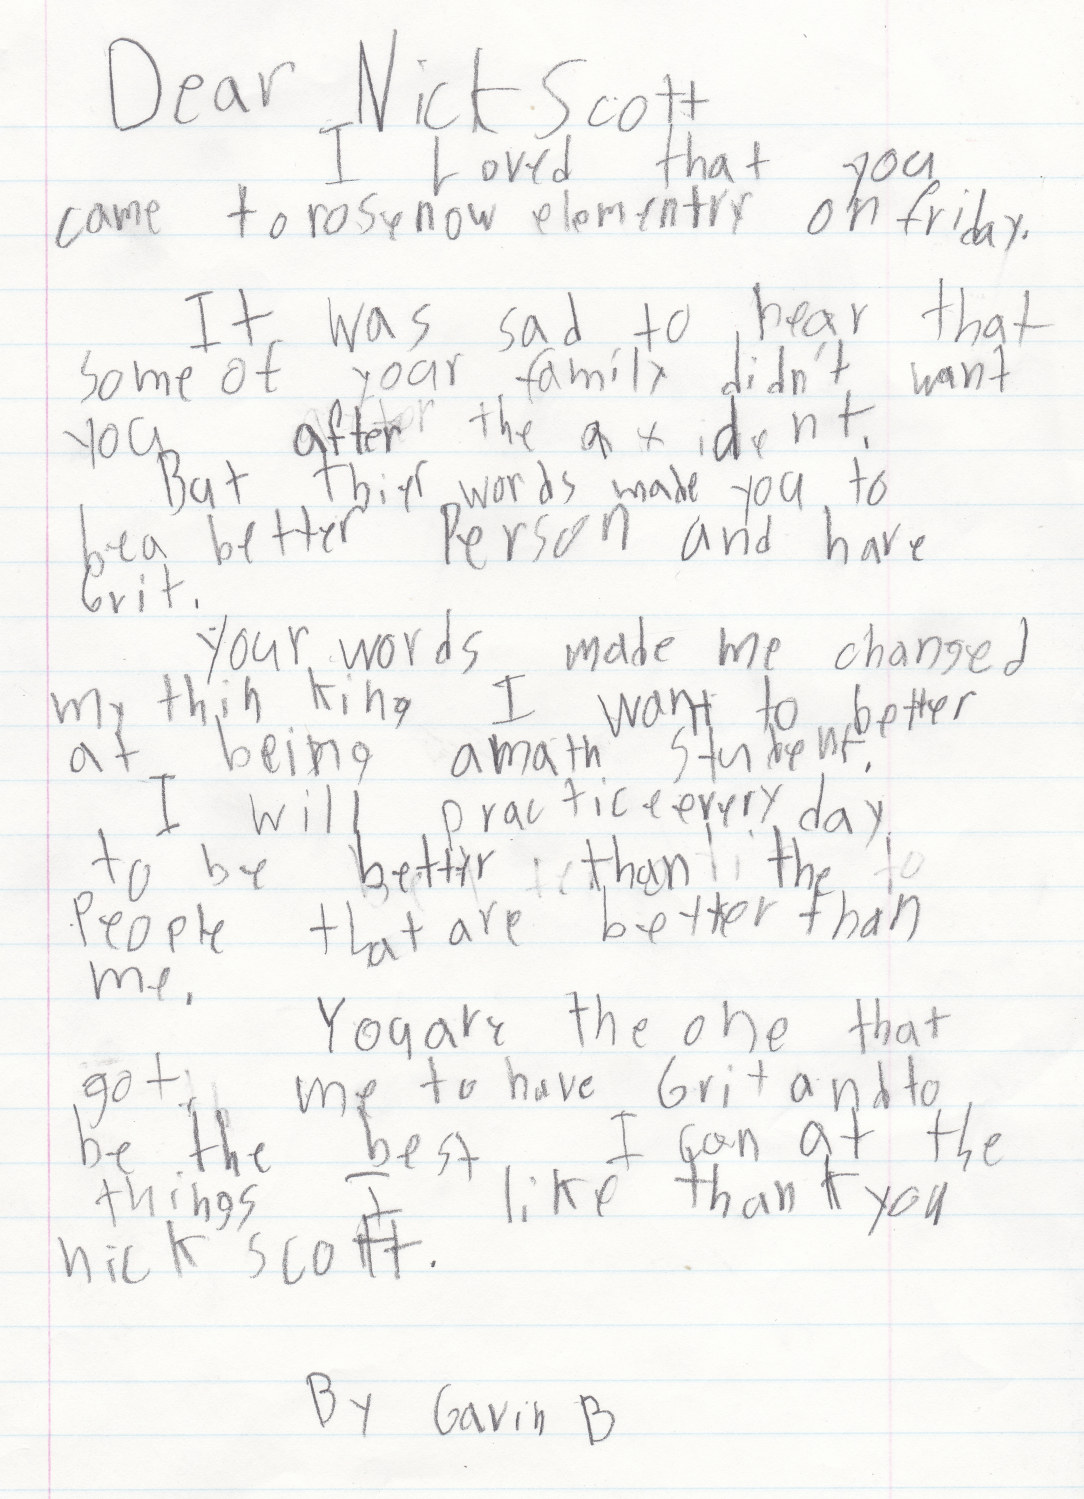 Dear Nick Scott
I Loved that you
came to rosenow elementry on friday.
It was sad to hear that
some of your family didn't want
you after the axident.
But thier words made you to
be a better Person and have
Grit.
Your words made me changed
my thinking I want to better
at being a math student.
I will practice every day
to be better than the
People that are better than
me.
You are the one that
got me to have Grit and to
be the best I can at the
things I like thank you
nick scott.
By Gavin B